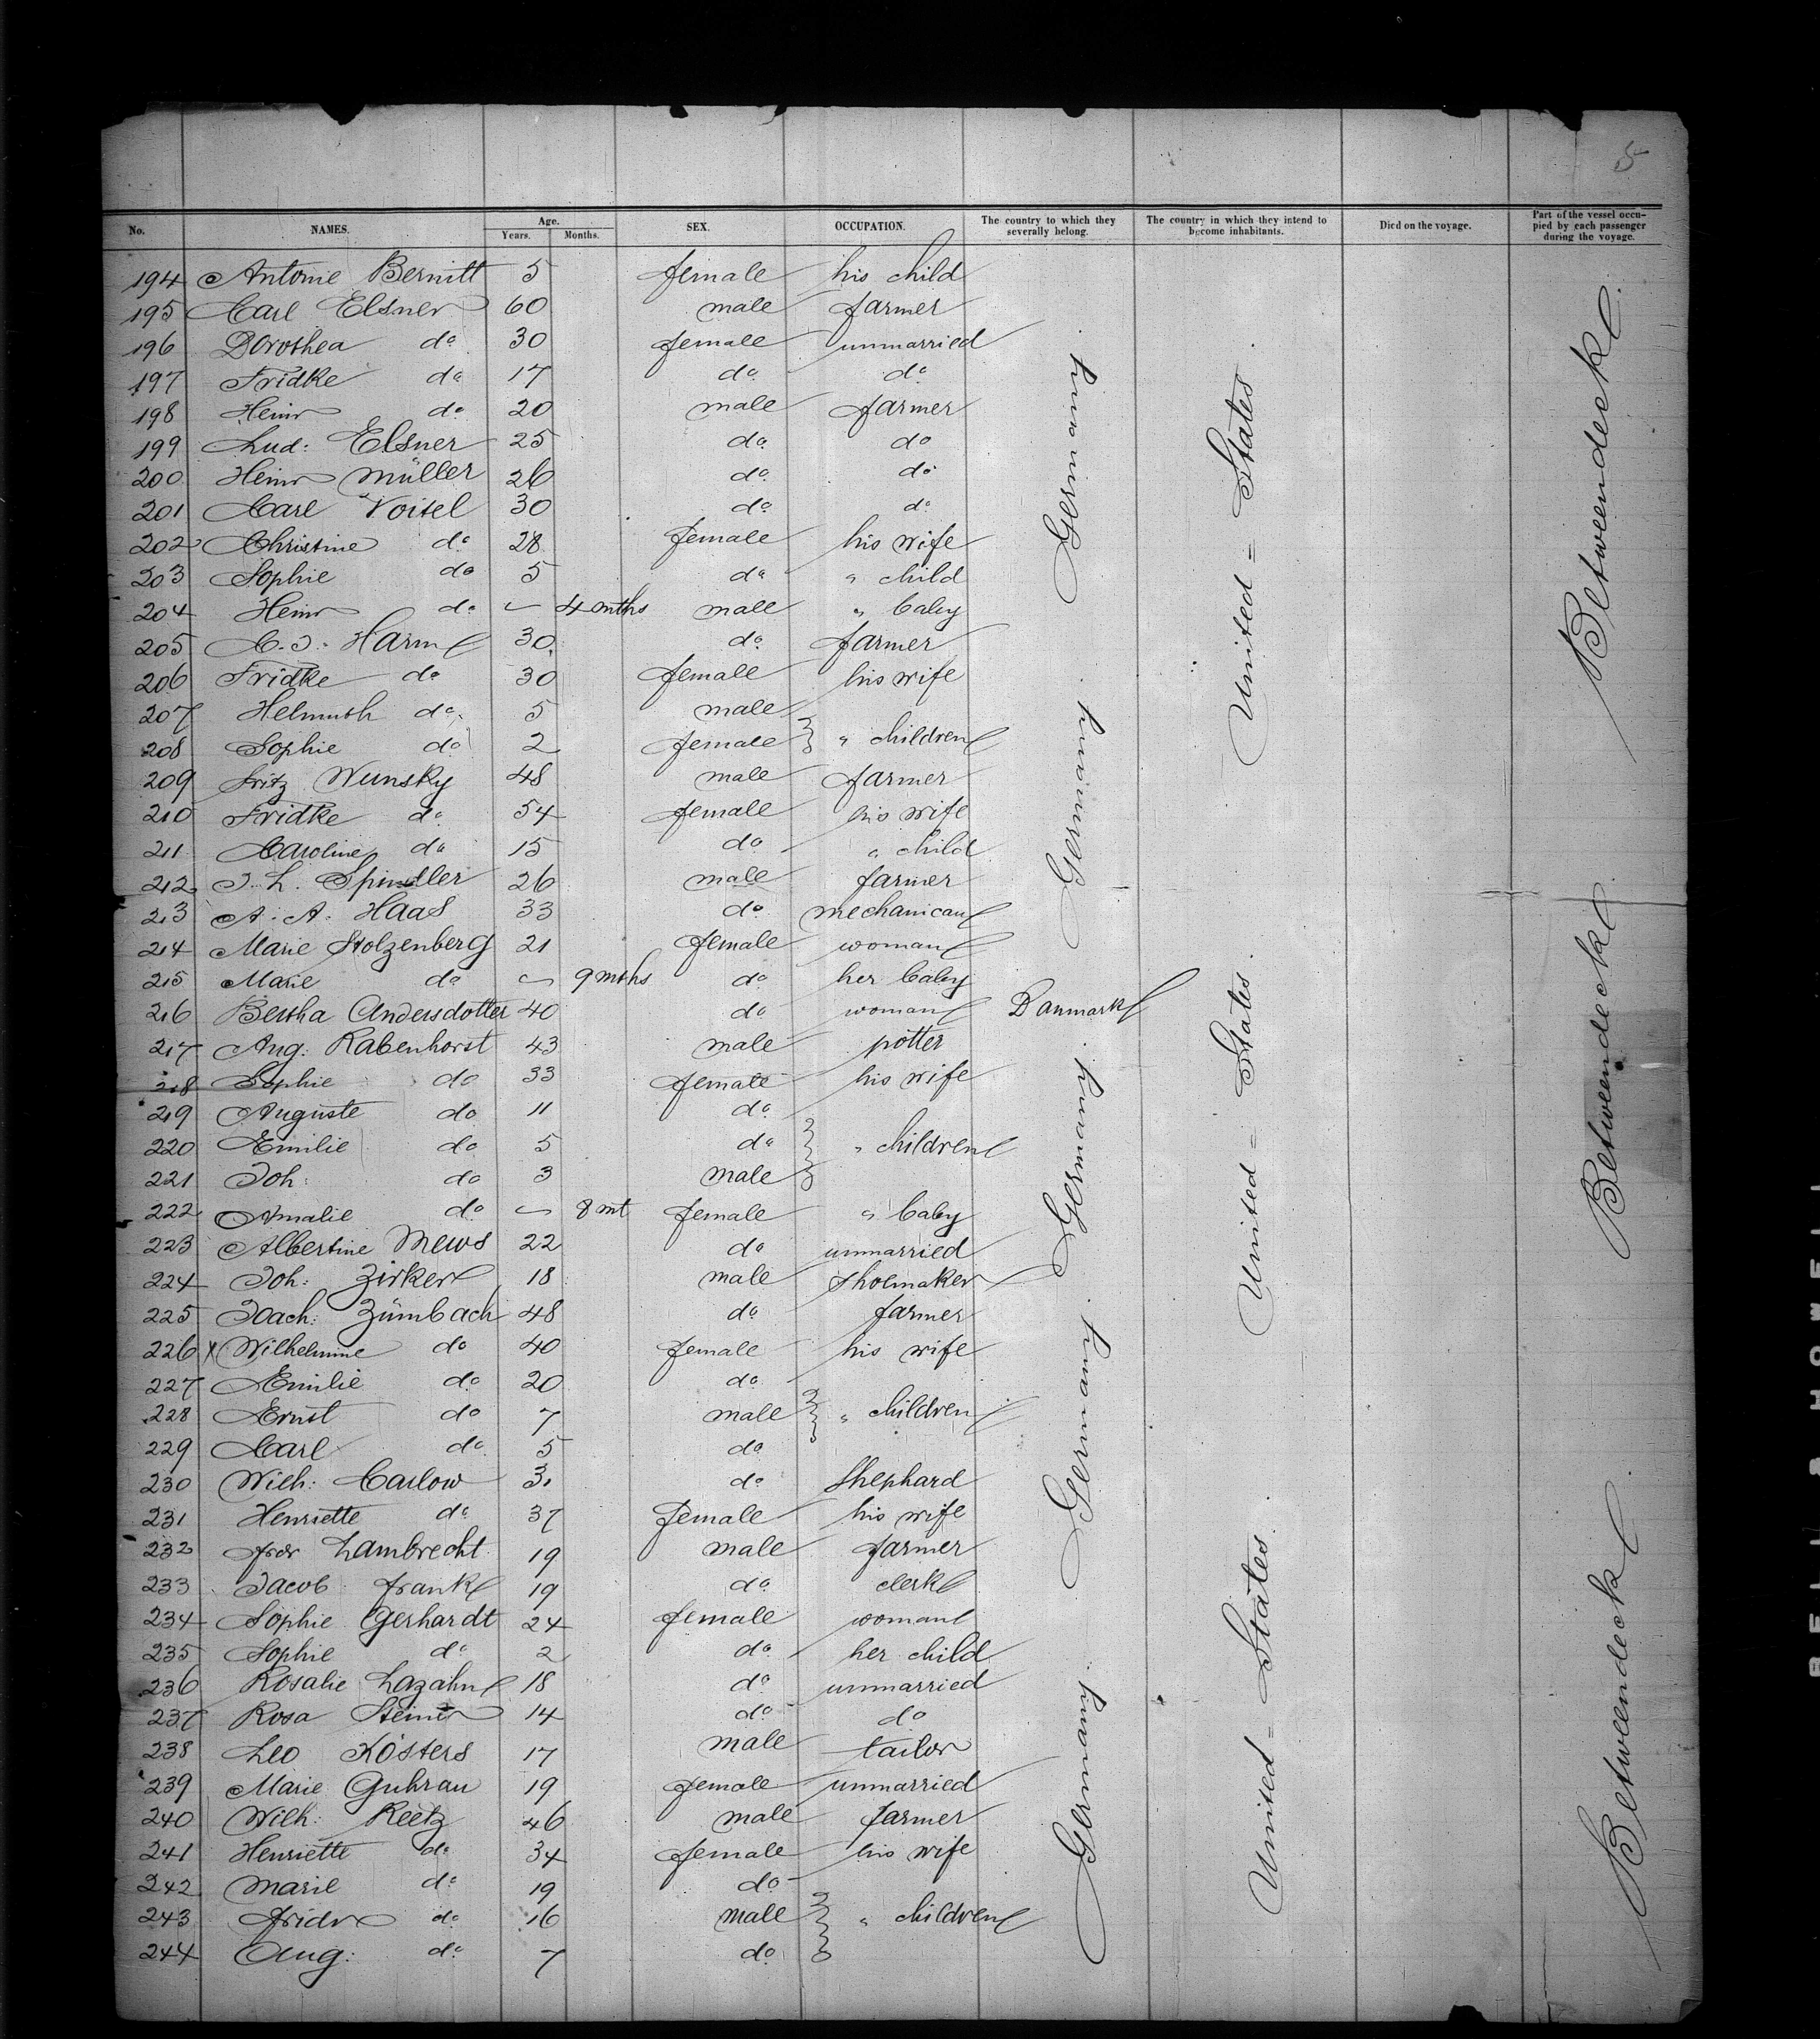 5
No. NAMES. Age. Years. Months. SEX. OCCUPATION. The country to which they severally belong. The country in which they intend to become inhabitants. Died on the voyage. Part of the vessel occupied by each passenger during the voyage.
194 Antonie Bernitt 5 female his child
195 Carl Elsner 60 male farmer
196 Dorothea do 30 female unmarried
197 Fridke do 17 do do
198 Heinr do 20 male farmer
199 Lud: Elsner 25 do do
200 Heinr Müller 26 do do
201 Carl Voisel 30 do do
202 Christine do 28 female his wife
203 Sophie do 5 do " child
204 Heinr do 4 mths male " baby
205 C. J. Harm 30 do farmer
206 Fridke do 30 female his wife
207 Helmuth do 5 male
208 Sophie do 2 female " children
209 Fritz Wunsky 48 male farmer
210 Fridke do 54 female his wife
211 Caroline do 15 do " child
212 J. L. Spindler 26 male farmer
213 A. A. Haas 33 do mechanican
214 Marie Stolzenberg 21 female woman
215 Marie do 9 mths do her baby
216 Bertha Andersdotter 40 do woman Danmark
217 Aug: Rabenhorst 43 male potter
218 Sophie do 33 female his wife
219 Auguste do 11 do
220 Emilie do 5 do " children
221 Joh: do 3 male
222 Amalie do 8 mt female " baby
223 Albertine Mews 22 do unmarried
224 Joh: Zirker 18 male shoemaker
225 Joach: Zümbach 48 do farmer
226 x Wilhelmine do 40 female his wife
227 Emilie do 20 do
228 Ernst do 7 male " children
229 Carl do 5 do
230 Wilh: Carlow 31 do Shephard
231 Henriette do 37 female his wife
232 Frdr Lambrecht 19 male farmer
233 Jacob Frank 19 do clerk
234 Sophie Gerhardt 24 female woman
235 Sophie do 2 do her child
236 Rosalie Lazahn 18 do unmarried
237 Rosa 14 do do
238 Leo Kösters 17 male tailor
239 Marie Guhrau 19 female unmarried
240 Wilh: Reetz 46 male farmer
241 Henriette do 34 female his wife
242 Marie do 19 do
243 Fridr do 16 male " children
244 Aug: do 7 do
Germany.
Germany.
Germany.
Germany.
Germany.
United = States.
United = States.
United = States.
Betweendeck.
Betweendeck.
Betweendeck
BELL & HOWELL